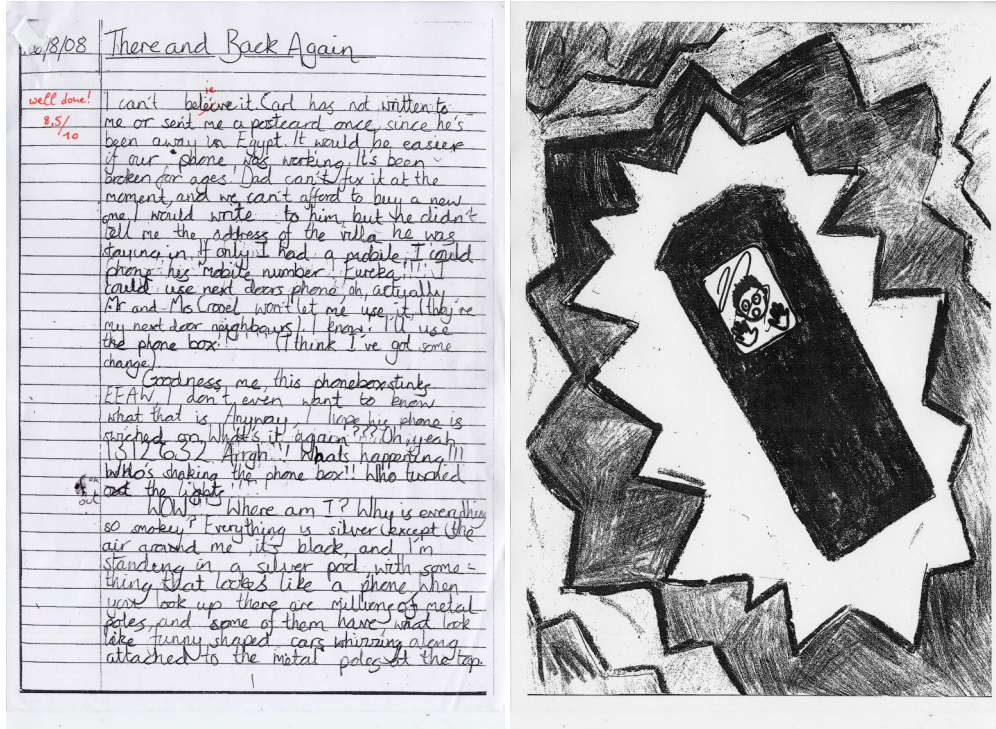 /8/08 There and Back Again
well done!
8,5/10
I can't beleive it. Carl has not written to
ie
me or sent me a postcard once since he's
been away in Egypt. It would be easier
if our phone was working. It's been
broken for ages! Dad can't fix it at the
moment, and we can't afford to buy a new
one. I would write to him, but he didn't
tell me the address of the villa he was
staying in. If only I had a mobile, I could
phone his mobile number! Eureka!!!! I
could use next doors phone, oh, actually
Mr and Mrs won't let me use it, (they're
my next door neighbours). I know! I'll use
the phone box! (I think I've got some
change)
Goodness me, this phonebox stinks
EEAW, I don't even want to know
what that is. Anyway, I hope his phone is
swiched on. What's it again??? Oh, yeah
1312632 Arrgh..! Whats happening!!!
Who's shaking the phone box!! Who turned
out the lights
out
WOW! Where am I? Why is everything
so smokey? Everything is silver (except the
air around me, it's black, and I'm
standing in a silver pod with some-
thing that lookes like a phone, when
you look up there are millions of metal
poles, and some of them have what look
like funny shaped cars whirring along
attached to the metal poles at the top.
1